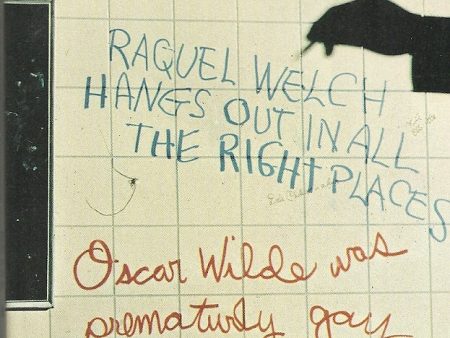 RAQUEL WELCH
HANGS OUT IN ALL
THE RIGHT PLACES
Oscar Wilde was
prematurely gay